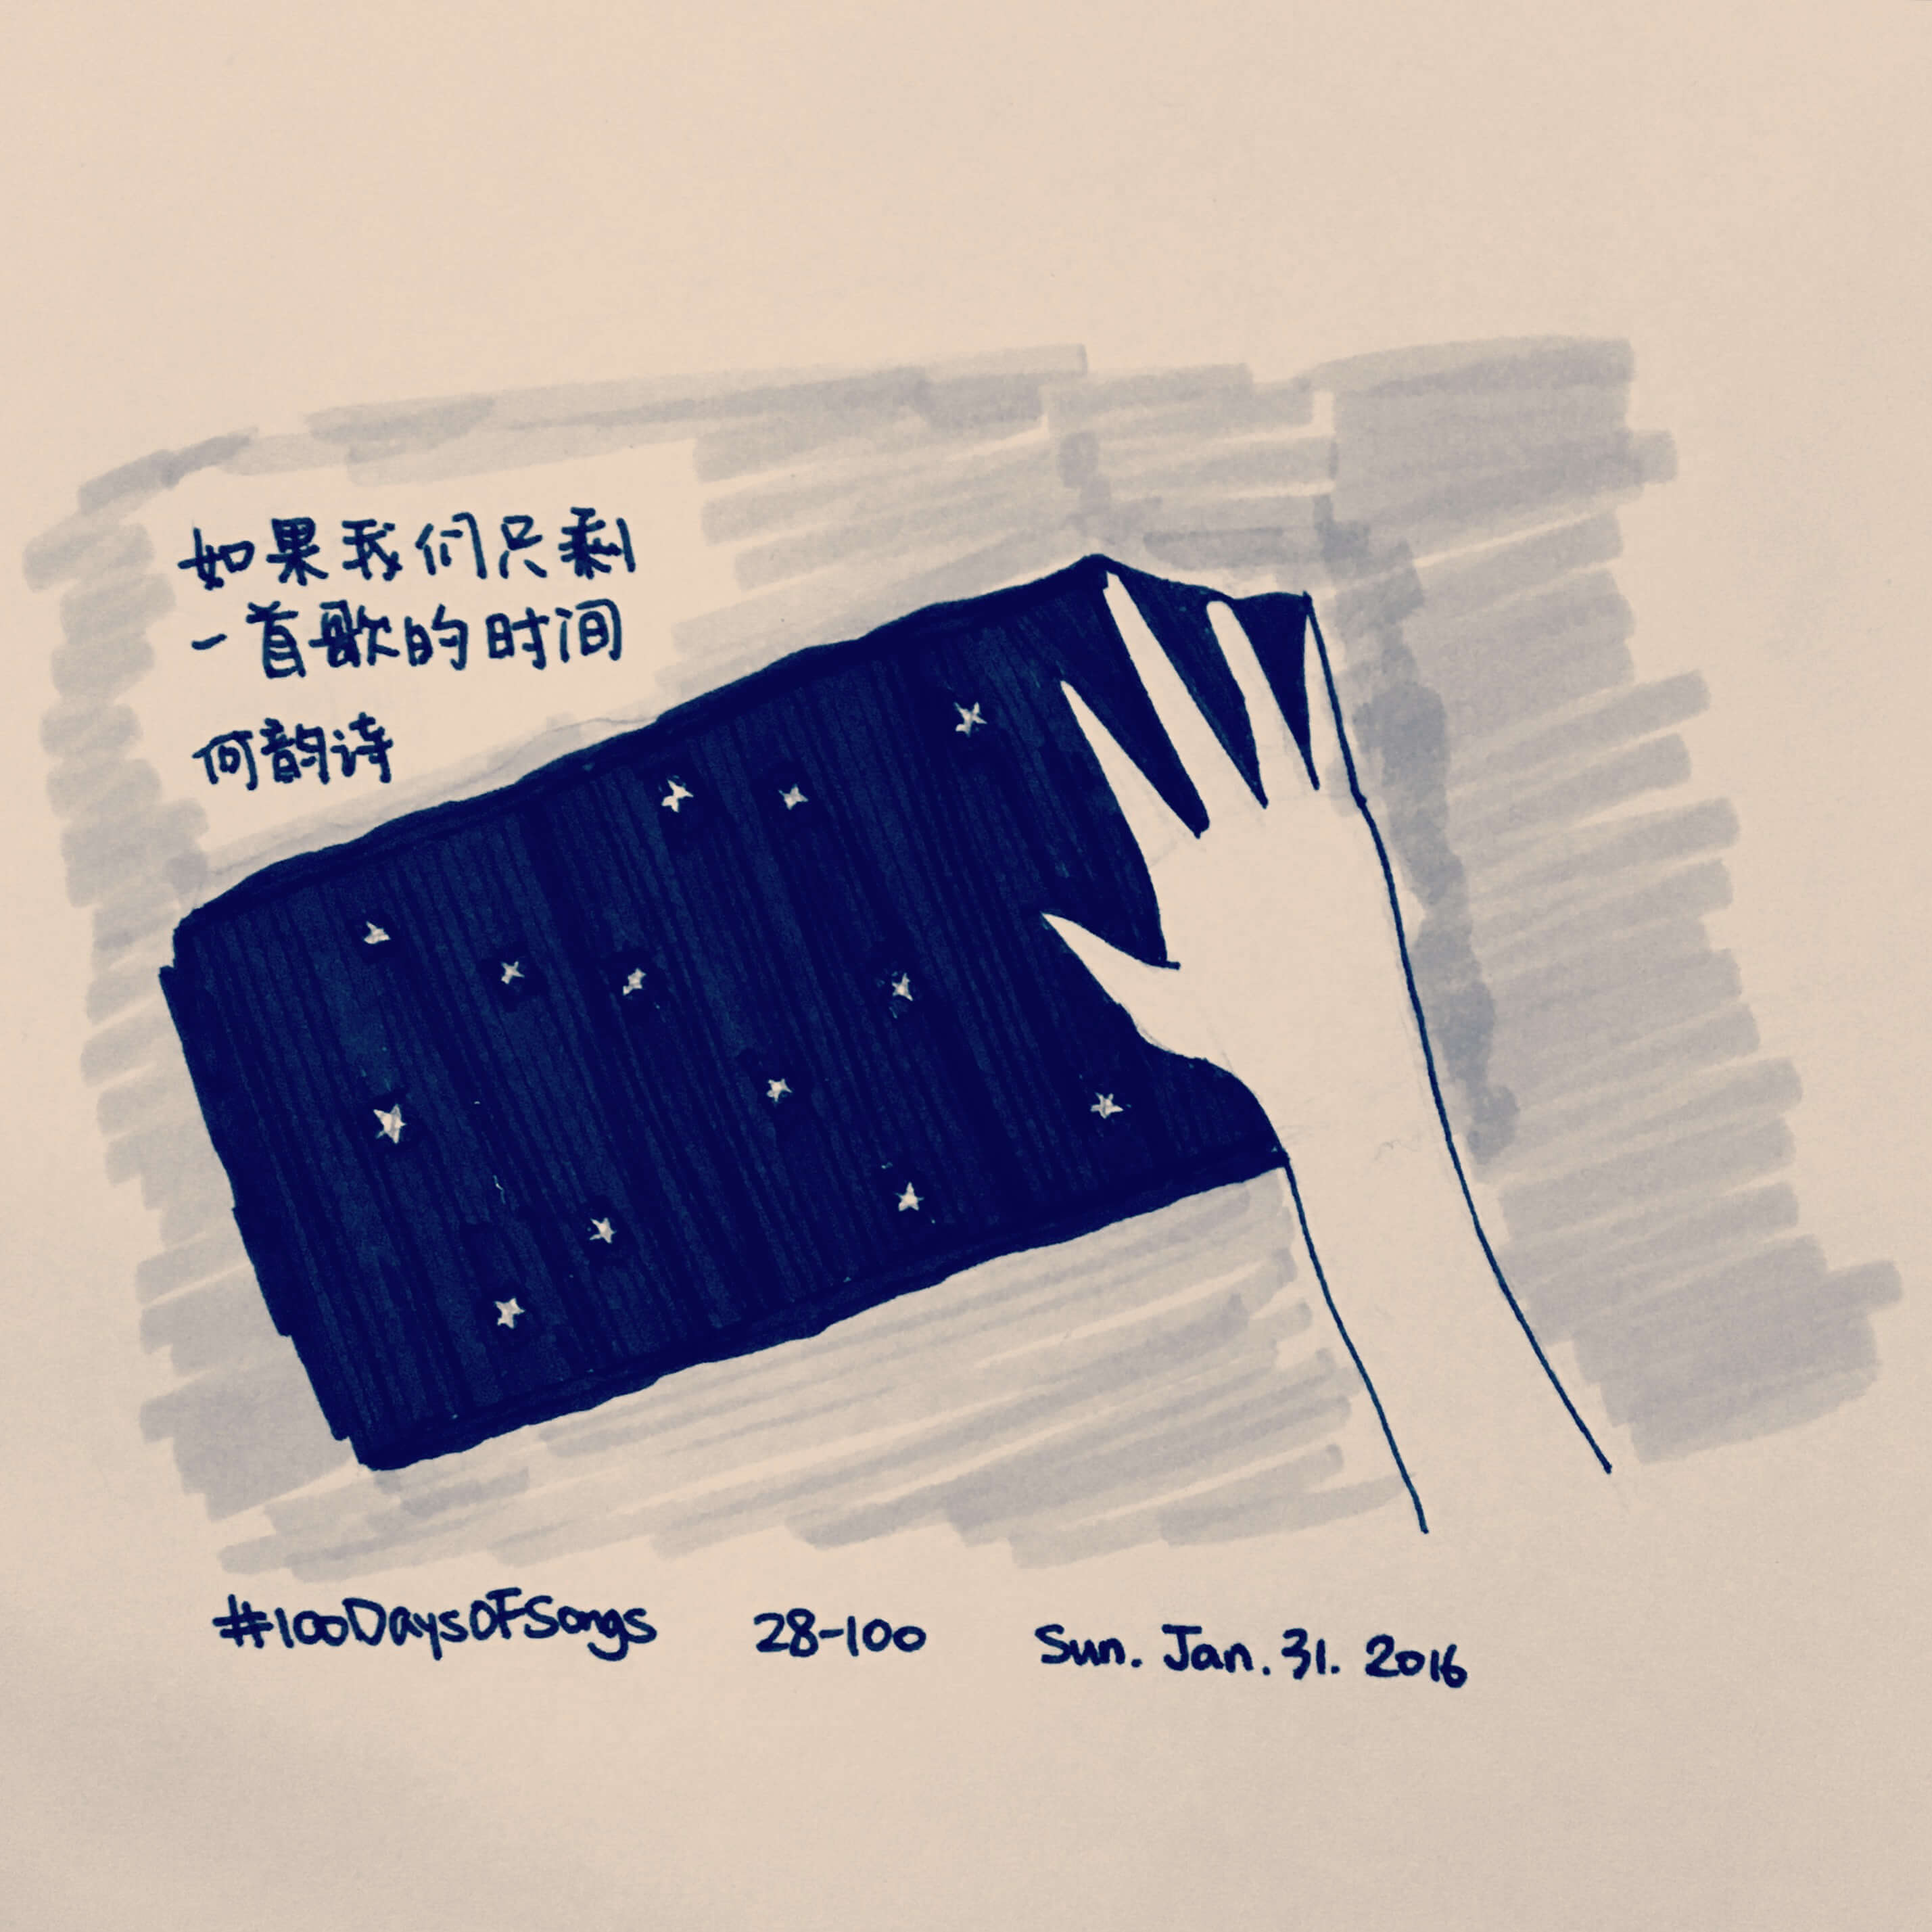 如果我们只剩
一首歌的时间
何韵诗
#100DaysOfSongs 28-100 Sun. Jan. 31. 2016